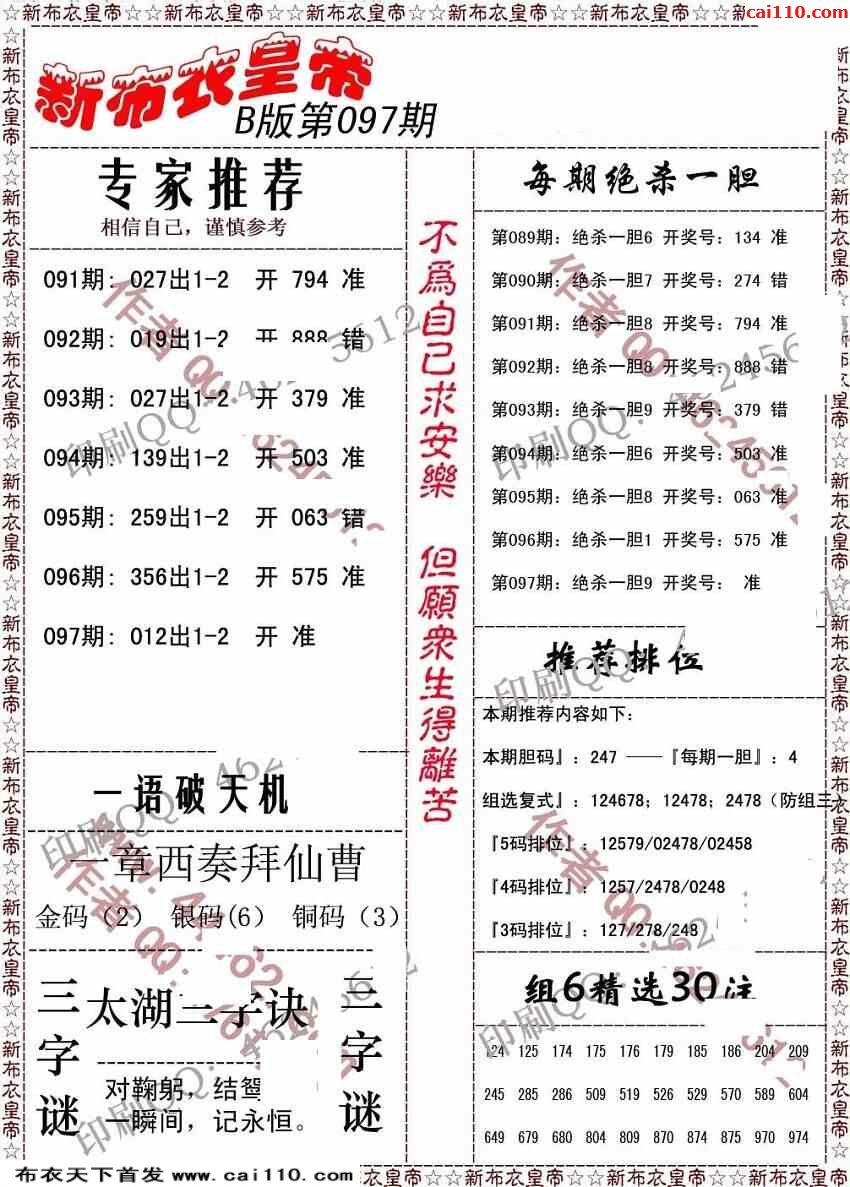 ☆☆新布衣皇帝☆☆新布衣皇帝☆☆新布衣皇帝☆☆新布衣皇帝☆☆新布衣皇帝☆☆新
cai110.com
新布衣皇帝
B版第097期
专家推荐
相信自己，谨慎参考
091期：027出1-2 开 794 准
092期：019出1-2 开 888 错
093期：027出1-2 开 379 准
094期：139出1-2 开 503 准
095期：259出1-2 开 063 错
096期：356出1-2 开 575 准
097期：012出1-2 开 准
一语破天机
一章西奏拜仙曹
金码（2） 银码(6) 铜码（3）
三字谜
太湖三字诀
对鞠躬，结鸳
一瞬间，记永恒。
三字谜
不爲自己求安樂 但願衆生得離苦
每期绝杀一胆
第089期：绝杀一胆6 开奖号：134 准
第090期：绝杀一胆7 开奖号：274 错
第091期：绝杀一胆8 开奖号：794 准
第092期：绝杀一胆8 开奖号：888 错
第093期：绝杀一胆9 开奖号：379 错
第094期：绝杀一胆6 开奖号：503 准
第095期：绝杀一胆8 开奖号：063 准
第096期：绝杀一胆1 开奖号：575 准
第097期：绝杀一胆9 开奖号： 准
推荐排位
本期推荐内容如下：
本期胆码』：247 ——『每期一胆』：4
组选复式』：124678；12478；2478（防组三）
『5码排位』：12579/02478/02458
『4码排位』：1257/2478/0248
『3码排位』：127/278/248
组6精选30注
124 125 174 175 176 179 185 186 204 209
245 285 286 509 519 526 529 570 589 604
649 679 680 804 809 870 874 875 970 974
布衣天下首发 www.cai110.com
衣皇帝☆☆新布衣皇帝☆☆新布衣皇帝☆☆新布衣皇帝☆☆